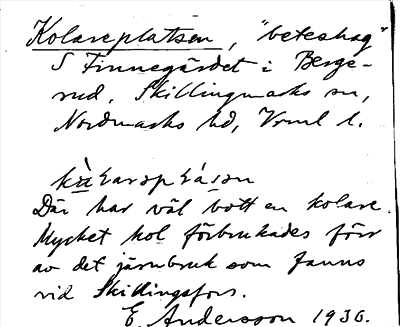 Kolareplatsen, "beteshag"
S Finnegärdet i Berge-
rud, Skillingmarks sn,
Nordmarks hd, Vrml l.
Där har väl bott en kolare.
Mycket kol förbrukades förr
av det järnbruk som fanns
vid Skillingsfors.
E. Andersson 1930.